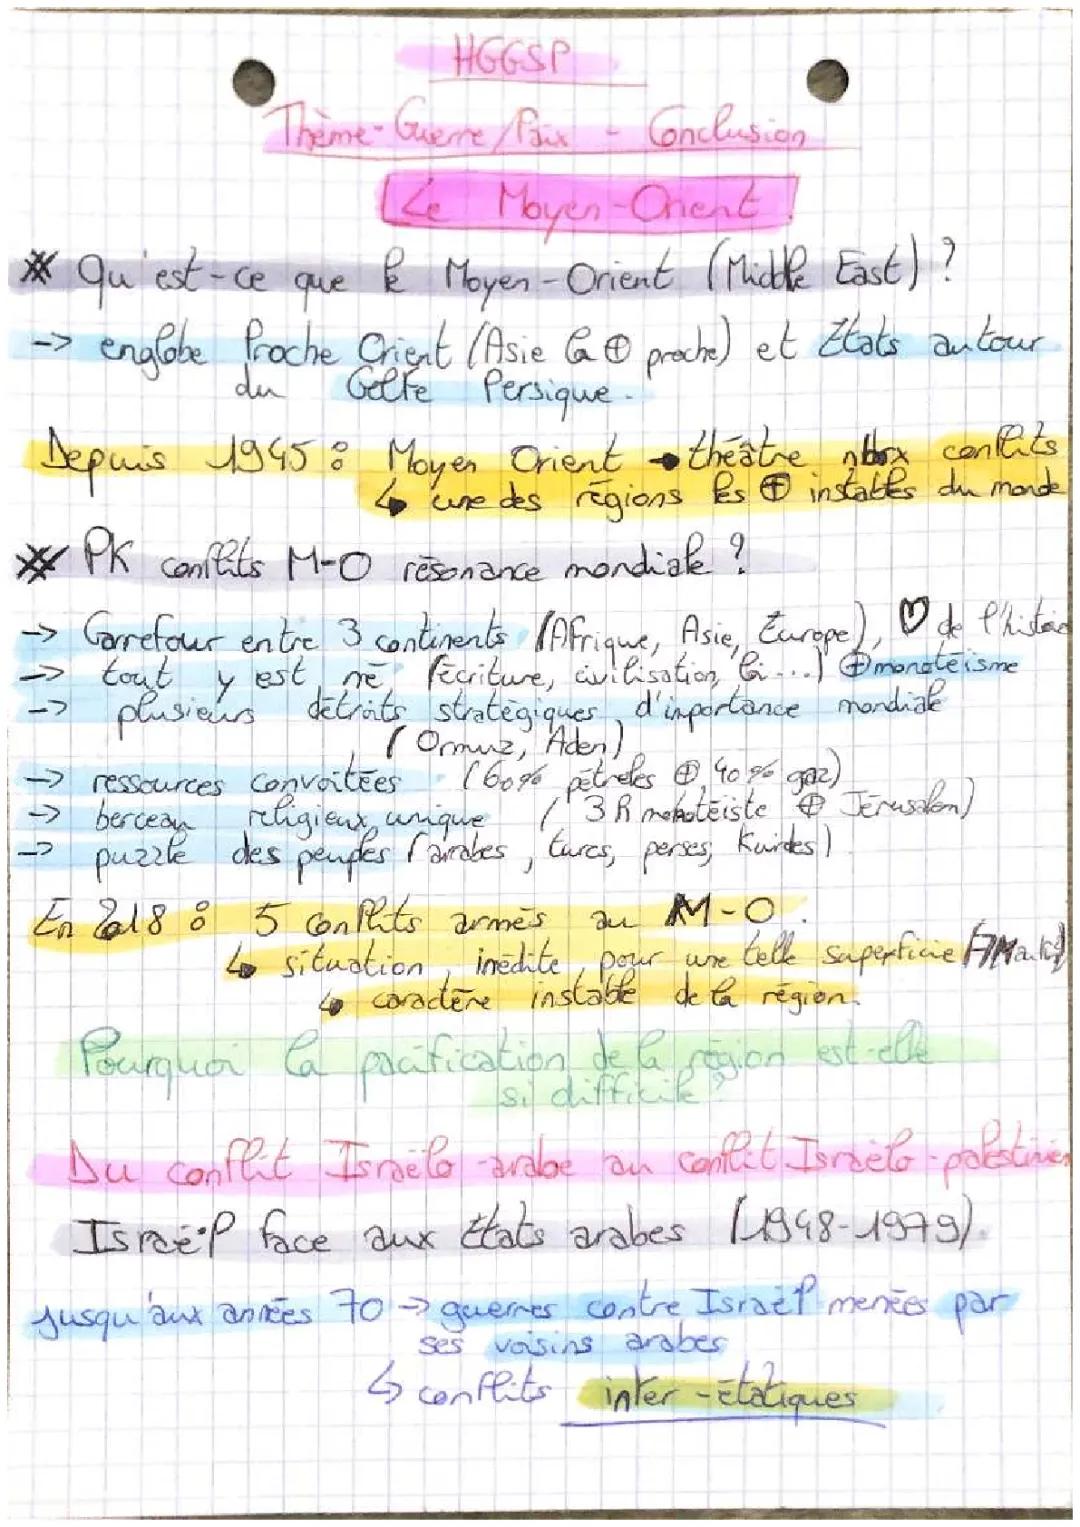 HGGSP
Thème-Guerre/Paix - Conclusion
Le Moyen-Orient
* Qu'est-ce que le Moyen-Orient (Middle East) ?
-> englobe Proche Orient (Asie la ⊕ proche) et Etats autour
du Golfe Persique.
Depuis 1945 : Moyen Orient → théâtre nbrx conflits
↳ une des régions les ⊕ instables du monde
* PK conflits M-O résonance mondiale ?
-> Carrefour entre 3 continents (Afrique, Asie, Europe), ♡ de l'histoire
-> tout y est né (écriture, civilisation, loi...) ⊕ monoteisme
-> plusieurs détroits stratégiques, d'importance mondiale
(Ormuz, Aden)
-> ressources convoitées (60% pétroles ⊕ 40% gaz)
-> berceau religieux unique (3 R monoteiste ⊕ Jérusalem)
-> puzzle des peuples (arabes, turcs, perses, Kurdes)
En 2018 : 5 conflits armés au M-O.
↳ situation inédite pour une telle superficie
↳ caractère instable de la région.
Pourquoi la pacification de la région est-elle
si difficile ?
Du conflit Israëlo-arabe au conflit Israëlo-palestinien
Israël face aux Etats arabes (1948-1979).
jusqu'aux années 70 -> guerres contre Israël menées par
ses voisins arabes
↳ conflits inter-étatiques